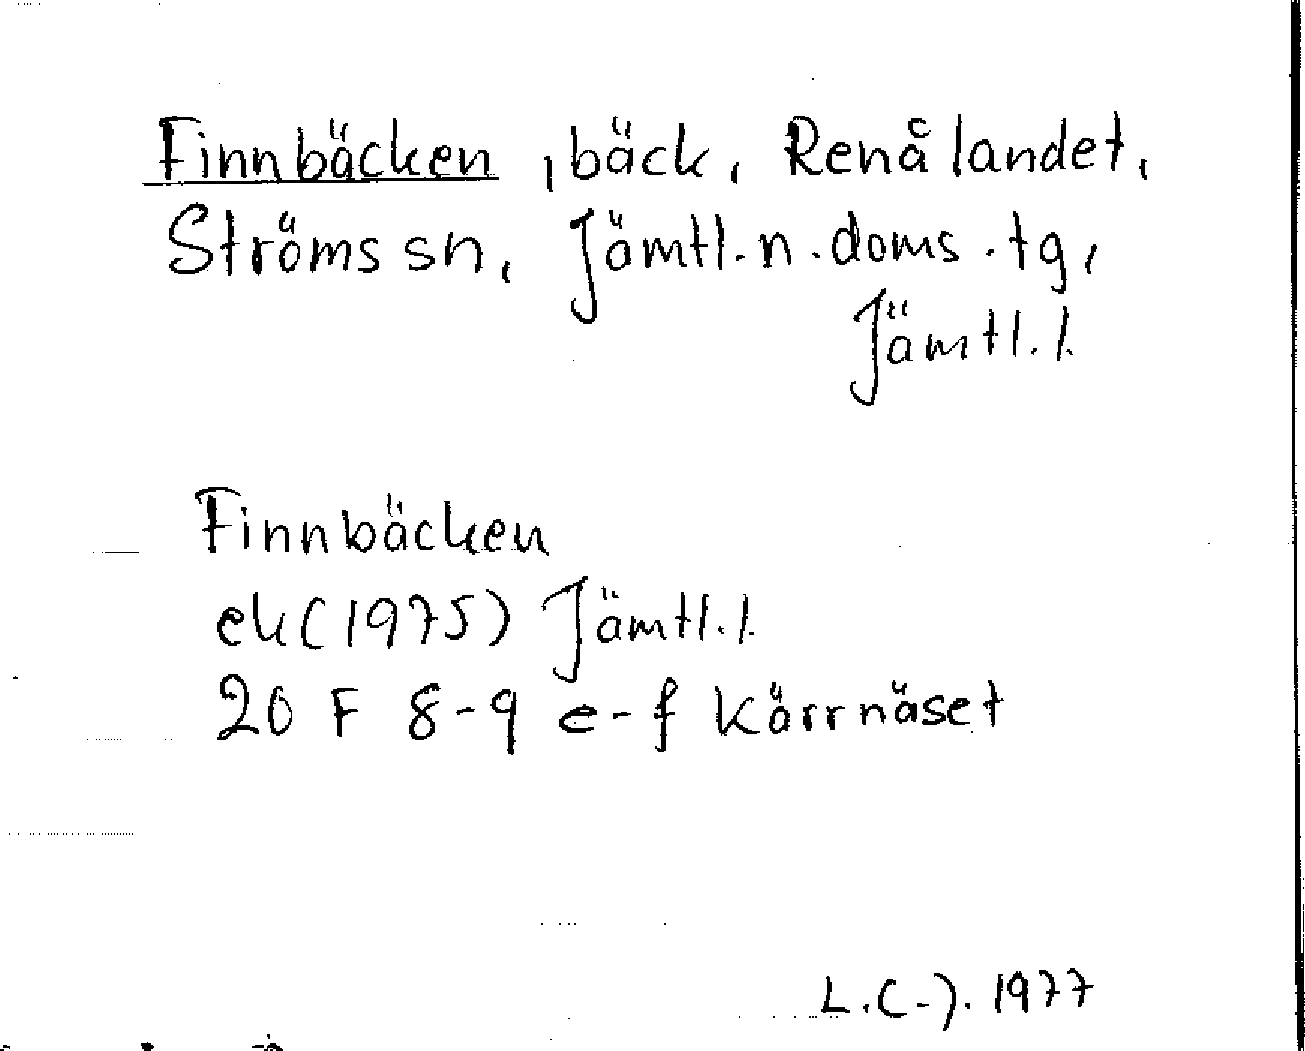 Finnbäcken, bäck, Renålandet,
Ströms sn, Jämtl. n. doms. tg,
Jämtl. l.
Finnbäcken
ek (1975) Jämtl. l.
20 F 8-9 e-f Kärrnäset
L. C-). 1977